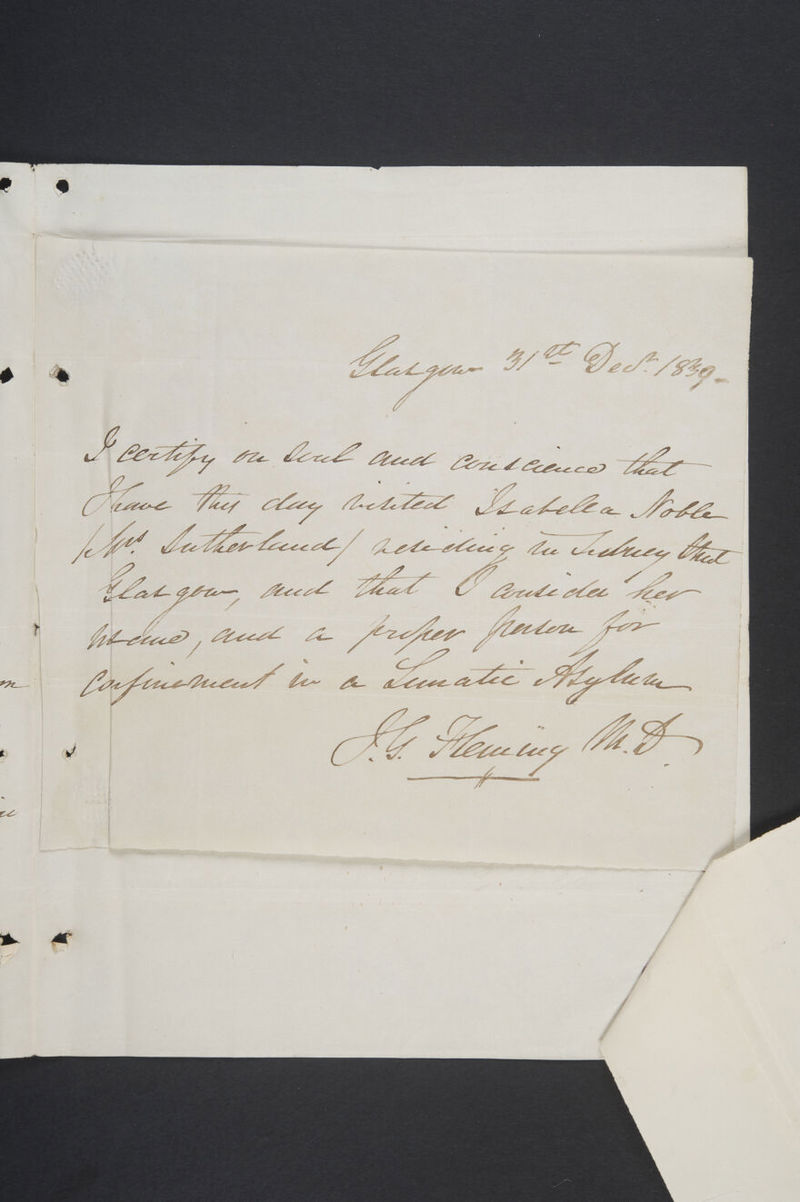 Glasgow 31st Decr. 1839.
I certify on Soul and conscience that
I have this day visited Isabella Noble
(Mrs. Sutherland) residing in Sidney Street
Glasgow, and that I consider her
insane, and a proper person for
confinement in a Lunatic Asylum
J.G. Fleming M.D.